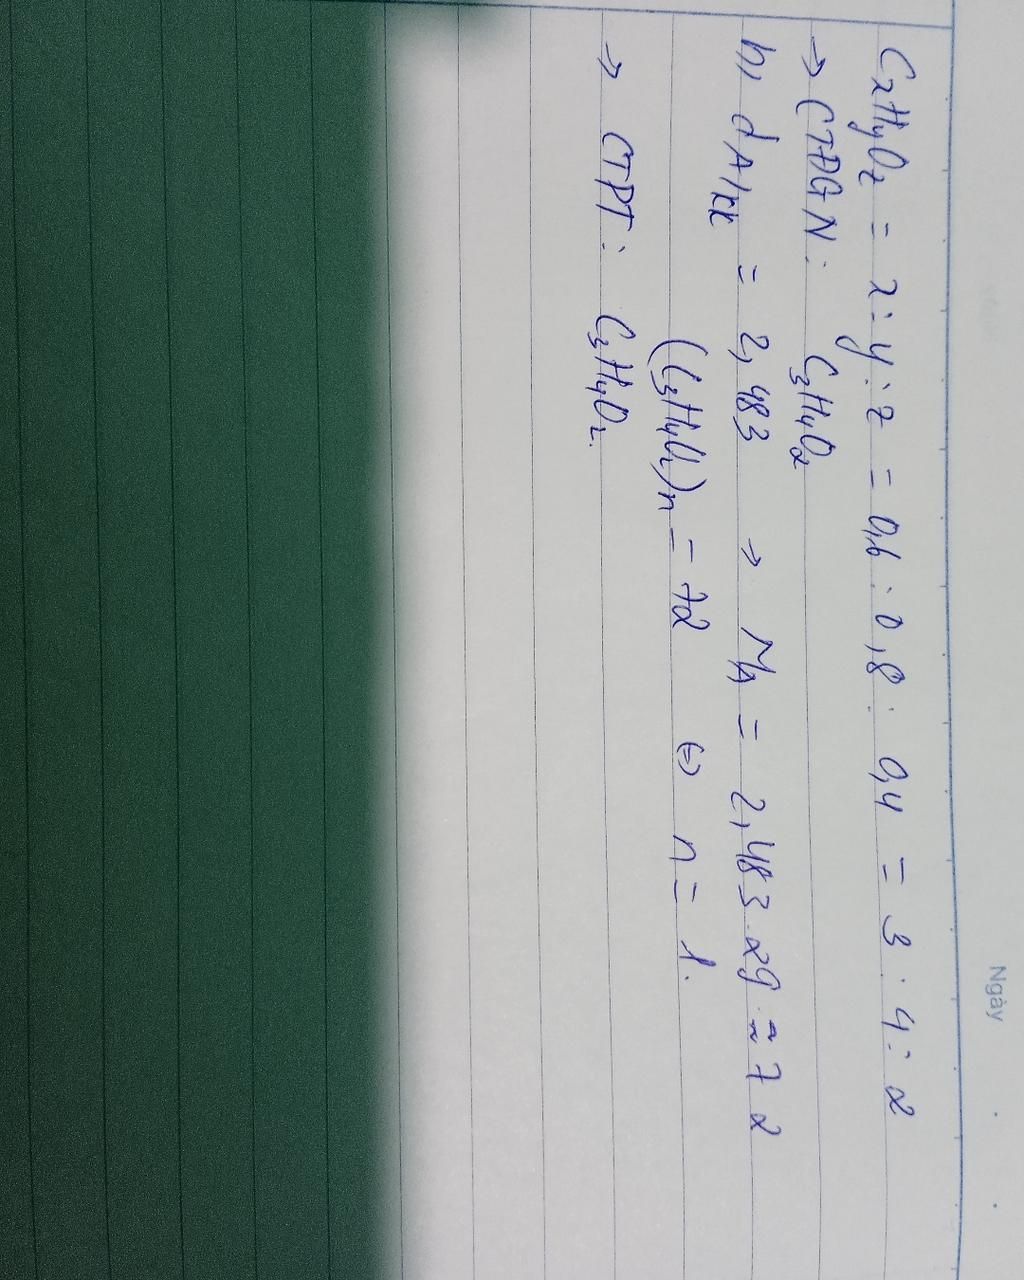 Ngày
CxHyOz = x : y : z = 0,6 : 0,8 : 0,4 = 3 : 4 : 2
→ CTĐGN : C3H4O2
b, dA/kk = 2,483 → MA = 2,483.29 ≈ 72
(C3H4O2)n = 72 ⇔ n = 1.
→ CTPT : C3H4O2.